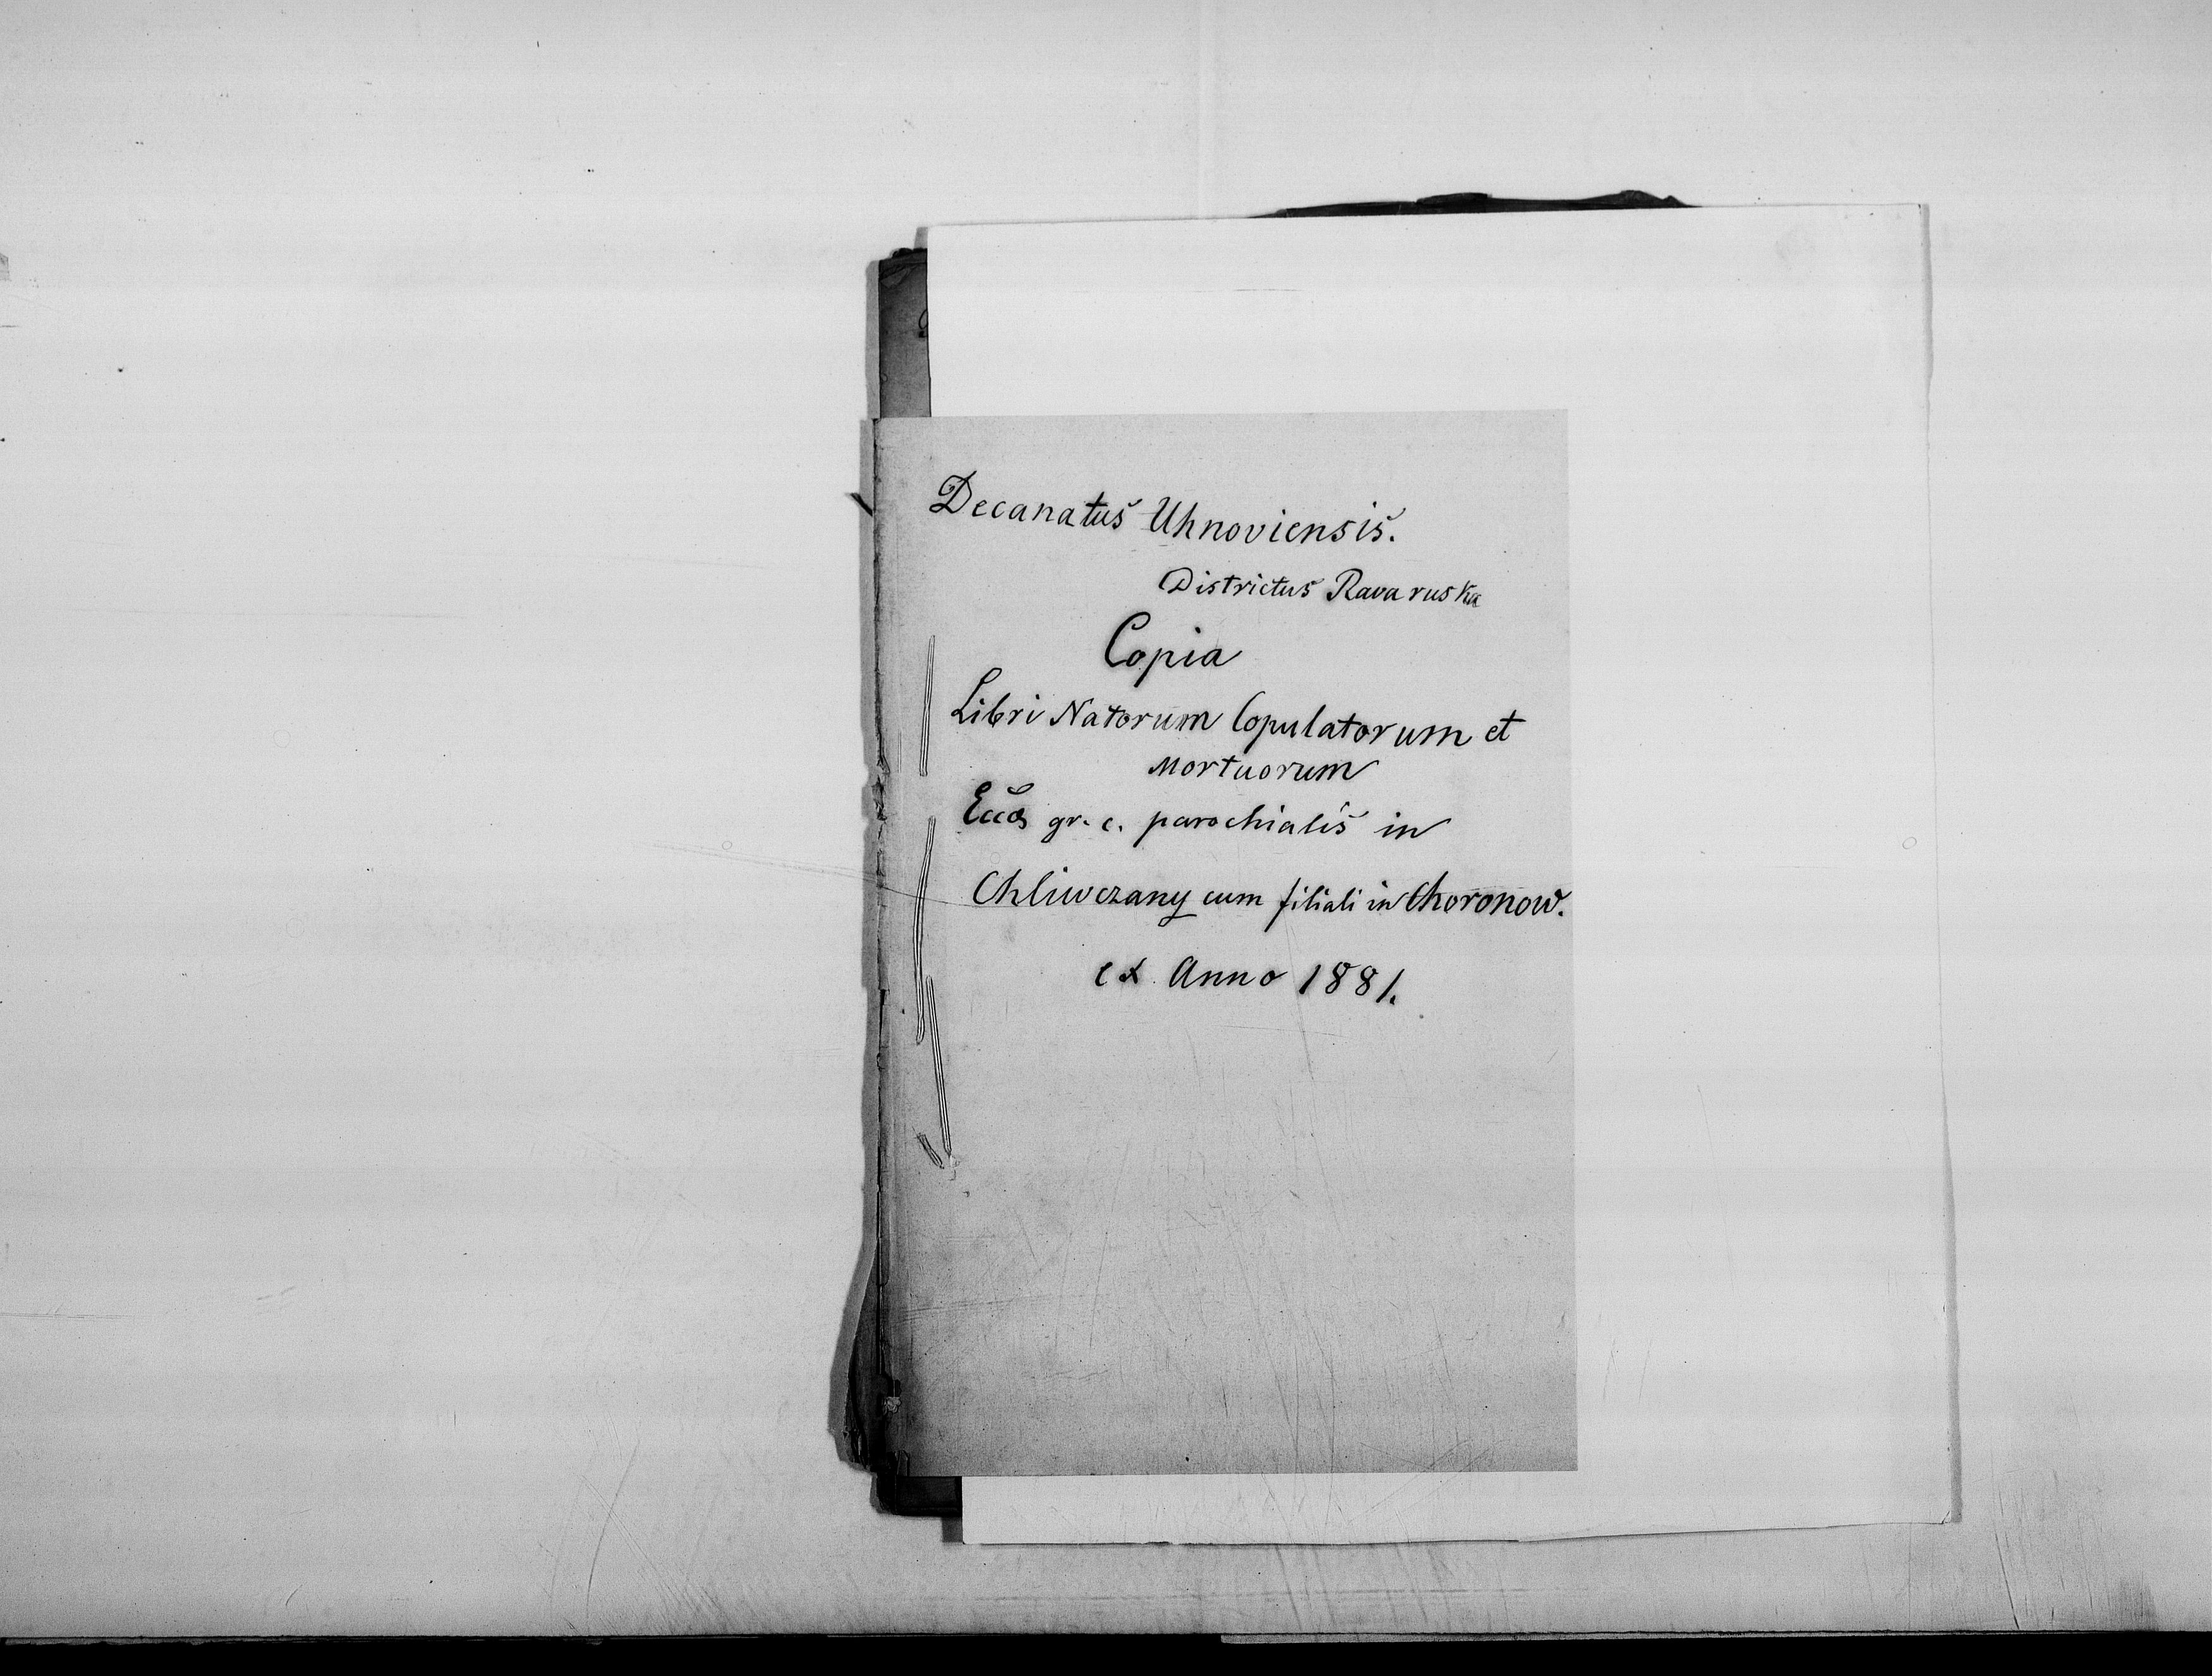 Decanatus Uhnoviensis.
Districtus Rava ruska
Copia
Libri Natorum Copulatorum et
Mortuorum
gr. c. parochialis in
Chliwczany cum filiali in Choronow.
ex Anno 1881.